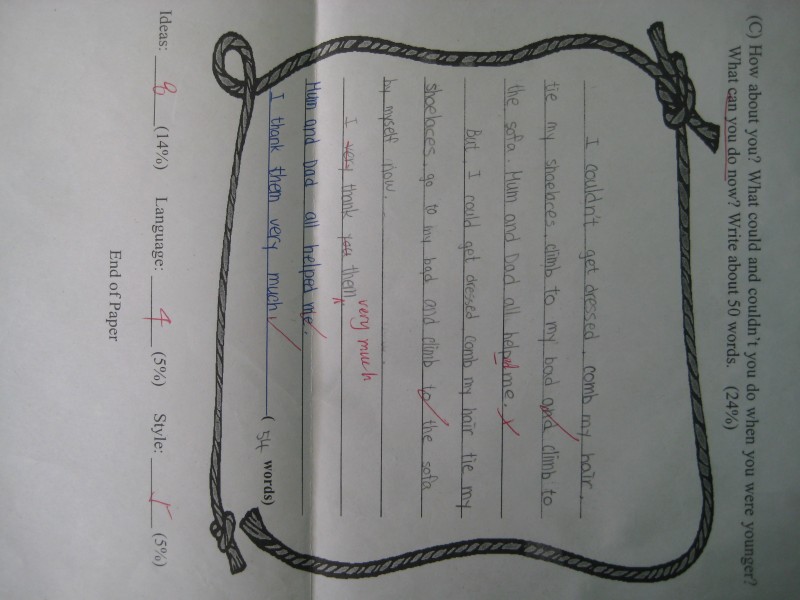 (C) How about you? What could and couldn't you do when you were younger?
What can you do now? Write about 50 words. (24%)
I couldn't get dressed, comb my hair,
tie my shoelaces, climb to my bad and climb to
the sofa. Mum and Dad all helped me.
But, I could get dressed comb my hair tie my
shoelaces go to my bad and climb to the sofa
by myself now.
I very thank you them very much
Mum and Dad all helped me
I thank them very much
( 54 words)
Ideas: 8 (14%) Language: 4 (5%) Style: (5%)
End of Paper